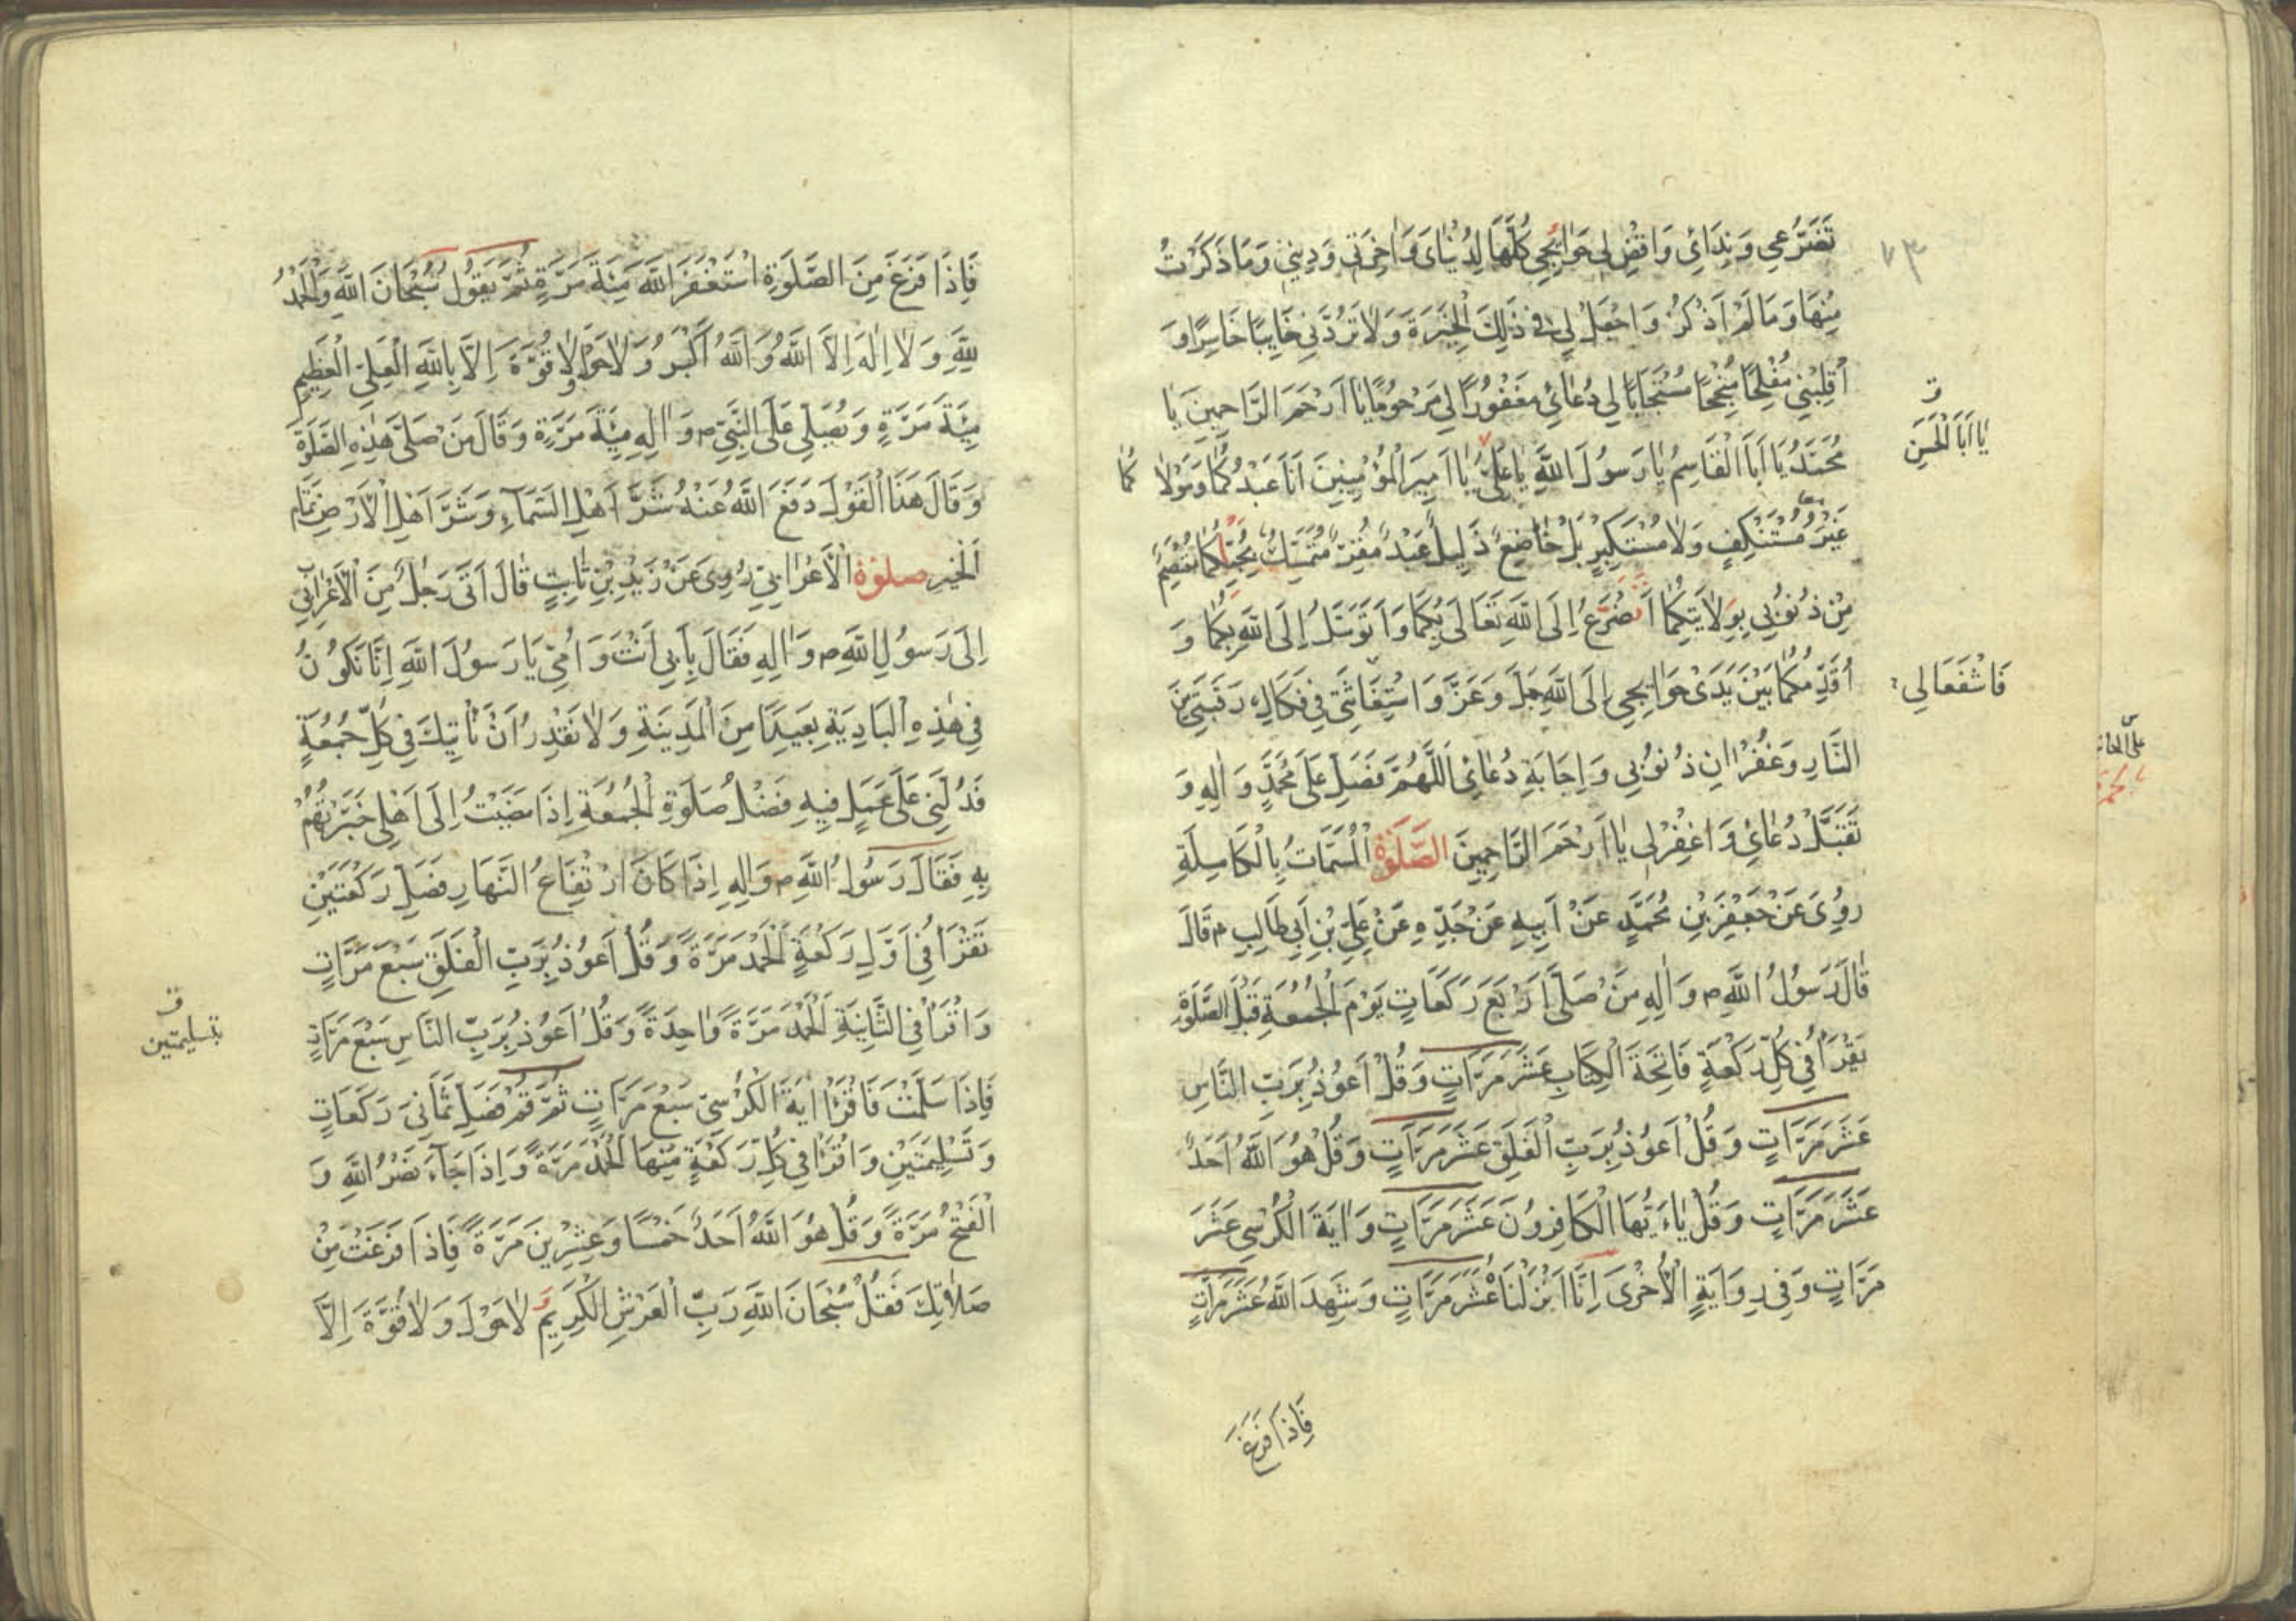 ٧٣
تَضَرُّعِي وَنِدَائِي وَاقْضِ لِي حَوَائِجِي كُلَّهَا لِدُنْيَايَ وَاٰخِرَتِي وَدِينِي وَمَا ذَكَرْتُ
مِنْهَا وَمَا لَمْ اَذْكُرْ وَاجْعَلْ لِي فِي ذٰلِكَ الْخِيَرَةَ وَلَا تَرُدَّنِي خَايِبًا خَاسِرًا وَ
اَقْلِبْنِي مُفْلِحًا مُنْجِحًا مُسْتَجَابًا لِي دُعَائِي مَغْفُورًا لِي مَرْحُومًا يَا اَرْحَمَ الرَّاحِمِينَ يَا
مُحَمَّدُ يَا اَبَا الْقَاسِمُ يَا رَسُولَ اللَّهِ يَا عَلِيُّ يَا اَمِيرَ الْمُؤْمِنِينَ اَنَا عَبْدُكُمَا وَمَوْلَا كُمَا
ق
يَا اَبَا الْحَسَنِ
غَيْرَ مُسْتَنْكِفٍ وَلَا مُسْتَكْبِرٍ بَلْ خَاضِعٌ ذَلِيلٌ عَبْدٌ مُقِرٌّ مُتَمَسِّكٌ بِحُبِّكُمَا مُعْتَصِمٌ
مِنْ ذُنُوبِي بِوِلَايَتِكُمَا اَتَضَرَّعُ اِلَى اللَّهِ تَعَالَى بِكُمَا وَاَتَوَسَّلُ اِلَى اللَّهِ بِكُمَا وَ
اُقَدِّمُكُمَا بَيْنَ يَدَيْ حَوَائِجِي اِلَى اللَّهِ جَلَّ وَعَزَّ وَاسْتِغَاثَتِي فِي فَكَاكِ رَقَبَتِي مِنَ
فَاشْفَعَا لِي
النَّارِ وَغُفْرَانِ ذُنُوبِي وَاِجَابَةِ دُعَائِي اَللَّهُمَّ فَصَلِّ عَلَى مُحَمَّدٍ وَاٰلِهِ وَ
تَقَبَّلْ دُعَائِي وَاغْفِرْ لِي يَا اَرْحَمَ الرَّاحِمِينَ الصَّلٰوةُ الْمُسَمَّاتُ بِالْكَامِلَةِ
رُوِيَ عَنْ جَعْفَرِ بْنِ مُحَمَّدٍ عَنْ اَبِيهِ عَنْ جَدِّهِ عَنْ عَلِيِّ بْنِ اَبِي طَالِبٍ م قَالَ
قَالَ رَسُولُ اللَّهِ م وَاٰلِهِ مَنْ صَلَّى اَرْبَعَ رَكَعَاتٍ يَوْمَ الْجُمُعَةِ قَبْلَ الصَّلٰوةِ
يَقْرَأُ فِي كُلِّ رَكْعَةٍ فَاتِحَةَ الْكِتَابِ عَشَرَ مَرَّاتٍ وَقُلْ اَعُوذُ بِرَبِّ النَّاسِ
عَشَرَ مَرَّاتٍ وَقُلْ اَعُوذُ بِرَبِّ الْفَلَقِ عَشَرَ مَرَّاتٍ وَقُلْ هُوَ اللَّهُ اَحَدٌ
عَشَرَ مَرَّاتٍ وَقُلْ يَاءَيُّهَا الْكَافِرُونَ عَشَرَ مَرَّاتٍ وَاٰيَةَ الْكُرْسِي عَشَرَ
مَرَّاتٍ وَفِي رِوَايَةٍ الْاُخْرٰى اِنَّا اَنْزَلْنَاهُ عَشَرَ مَرَّاتٍ وَشَهِدَ اللَّهُ عَشَرَ مَرَّاتٍ
فَاِذَا فَرَغَ
فَاِذَا فَرَغَ مِنَ الصَّلٰوةِ اسْتَغْفَرَ اللَّهَ مِئَةَ مَرَّةٍ ثُمَّ يَقُولُ سُبْحَانَ اللَّهِ وَالْحَمْدُ
لِلَّهِ وَلَا اِلٰهَ اِلَّا اللَّهُ وَاللَّهُ اَكْبَرُ وَلَا حَوْلَ وَلَا قُوَّةَ اِلَّا بِاللَّهِ الْعَلِيِّ الْعَظِيمِ
مِئَةَ مَرَّةٍ وَيُصَلِّي عَلَى النَّبِيِّ م وَاٰلِهِ مِئَةَ مَرَّةٍ وَقَالَ مَنْ صَلَّى هٰذِهِ الصَّلٰوةَ
وَقَالَ هَذَا الْقَوْلَ دَفَعَ اللَّهُ عَنْهُ شَرَّ اَهْلِ السَّمَآءِ وَشَرَّ اَهْلِ الْاَرْضِ تَمَام
الْخَبَرِ صلوٰة الْاَعْرَابِيِّ رُوِيَ عَنْ زَيْدِ بْنِ ثَابِتٍ قَالَ اَتَى رَجُلٌ مِنَ الْاَعْرَابِ
اِلَى رَسُولِ اللَّهِ م وَاٰلِهِ فَقَالَ بِاَبِي اَنْتَ وَاُمِّي يَا رَسُولَ اللَّهِ اِنَّا نَكُونُ
فِي هٰذِهِ الْبَادِيَةِ بَعِيدًا مِنَ الْمَدِينَةِ وَلَا نَقْدِرُ اَنْ نَأْتِيَكَ فِي كُلِّ جُمُعَةٍ
فَدُلَّنِي عَلَى عَمَلٍ فِيهِ فَضْلُ صَلٰوةِ الْجُمُعَةِ اِذَا مَضَيْتُ اِلَى اَهْلِي خَبَّرْتُهُمْ
بِهِ فَقَالَ رَسُولُ اللَّهِ م وَاٰلِهِ اِذَا كَانَ ارْتِفَاعُ النَّهَارِ فَصَلِّ رَكْعَتَيْنِ
تَقْرَأُ فِي اَوَّلِ رَكْعَةٍ الْحَمْدَ مَرَّةً وَقُلْ اَعُوذُ بِرَبِّ الْفَلَقِ سَبْعَ مَرَّاتٍ
وَاقْرَأْ فِي الثَّانِيَةِ الْحَمْدَ مَرَّةً وَاحِدَةً وَقُلْ اَعُوذُ بِرَبِّ النَّاسِ سَبْعَ مَرَّاتٍ
فَاِذَا سَلَّمْتَ فَاقْرَأْ اٰيَةَ الْكُرْسِيِّ سَبْعَ مَرَّاتٍ ثُمَّ قُمْ فَصَلِّ ثَمَانِيَ رَكَعَاتٍ
ق
بتسليمتين
وَتَسْلِيمَتَيْنِ وَاقْرَأْ فِي كُلِّ رَكْعَةٍ مِنْهَا الْحَمْدَ مَرَّةً وَاِذَا جَآءَ نَصْرُ اللَّهِ وَ
الْفَتْحُ مَرَّةً وَقُلْ هُوَ اللَّهُ اَحَدٌ خَمْسًا وَعِشْرِينَ مَرَّةً فَاِذَا فَرَغْتَ مِنْ
صَلَاتِكَ فَقُلْ سُبْحَانَ اللَّهِ رَبِّ الْعَرْشِ الْكَرِيمِ وَ لَا حَوْلَ وَلَا قُوَّةَ اِلَّا